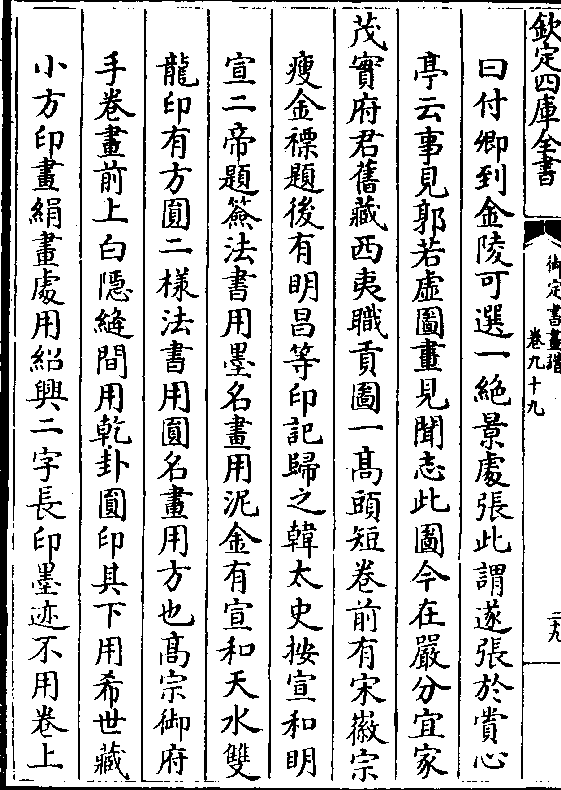 欽定四庫全書
御定書畫譜
卷九十九
二十九
曰付卿到金陵可選一絕景處張此謂遂張於賞心
亭云事見郭若虛圖畫見聞志此圖今在嚴分宜家
茂實府君舊藏西夷職貢圖一髙頭短卷前有宋徽宗
瘦金褾題後有明昌等印記歸之韓太史按宣和明
宣二帝題籤法書用墨名畫用泥金有宣和天水雙
龍印有方圓二様法書用圓名畫用方也髙宗御府
手卷畫前上白隱縫間用乾卦圓印其下用希世藏
小方印畫絹畫處用紹興二字長印墨迹不用卷上